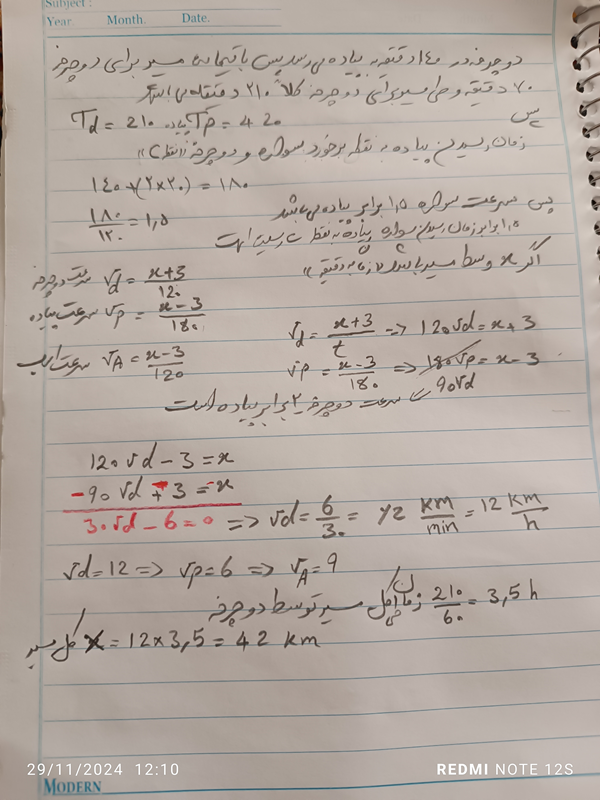 Subject:
Year. Month. Date.
دوچرخه در ۱۴۰ دقیقه به پیاده می‌رسد پس باقیمانده مسیر برای دوچرخه
۷۰ دقیقه و طی مسیر برای دوچرخه کلا ۲۱۰ دقیقه
پس
Td = 210 پیاده Tp = 420
زمان رسیدن پیاده به نقطه برخورد سواره و دوچرخه (نقطه C)
۱۴۰+(۲×۲۰) = ۱۸۰
180/120 = 1,5
پس سرعت سواره ۱,۵ برابر پیاده می‌باشد
۱,۵ برابر زمان رسیدن سواره پیاده به نقطه C است
اگر x وسط مسیر باشد
سرعت دوچرخه Vd = x+3/120
سرعت پیاده Vp = x-3/180
Vd = x+3/t => 120Vd = x+3
سرعت اسب VA = x-3/120
Vp = x-3/180 => 180Vp = x-3
90Vd
سرعت دوچرخه ۲ برابر پیاده است
120Vd - 3 = x
-90Vd + 3 = -x
30Vd - 6 = 0 => Vd = 6/30 = 1/2 km/min = 12 km/h
Vd = 12 => Vp = 6 => VA = 9
زمان طی کل مسیر توسط دوچرخه 210/60 = 3,5 h
کل مسیر X = 12×3,5 = 42 km
29/11/2024 12:10
REDMI NOTE 12S
MODERN